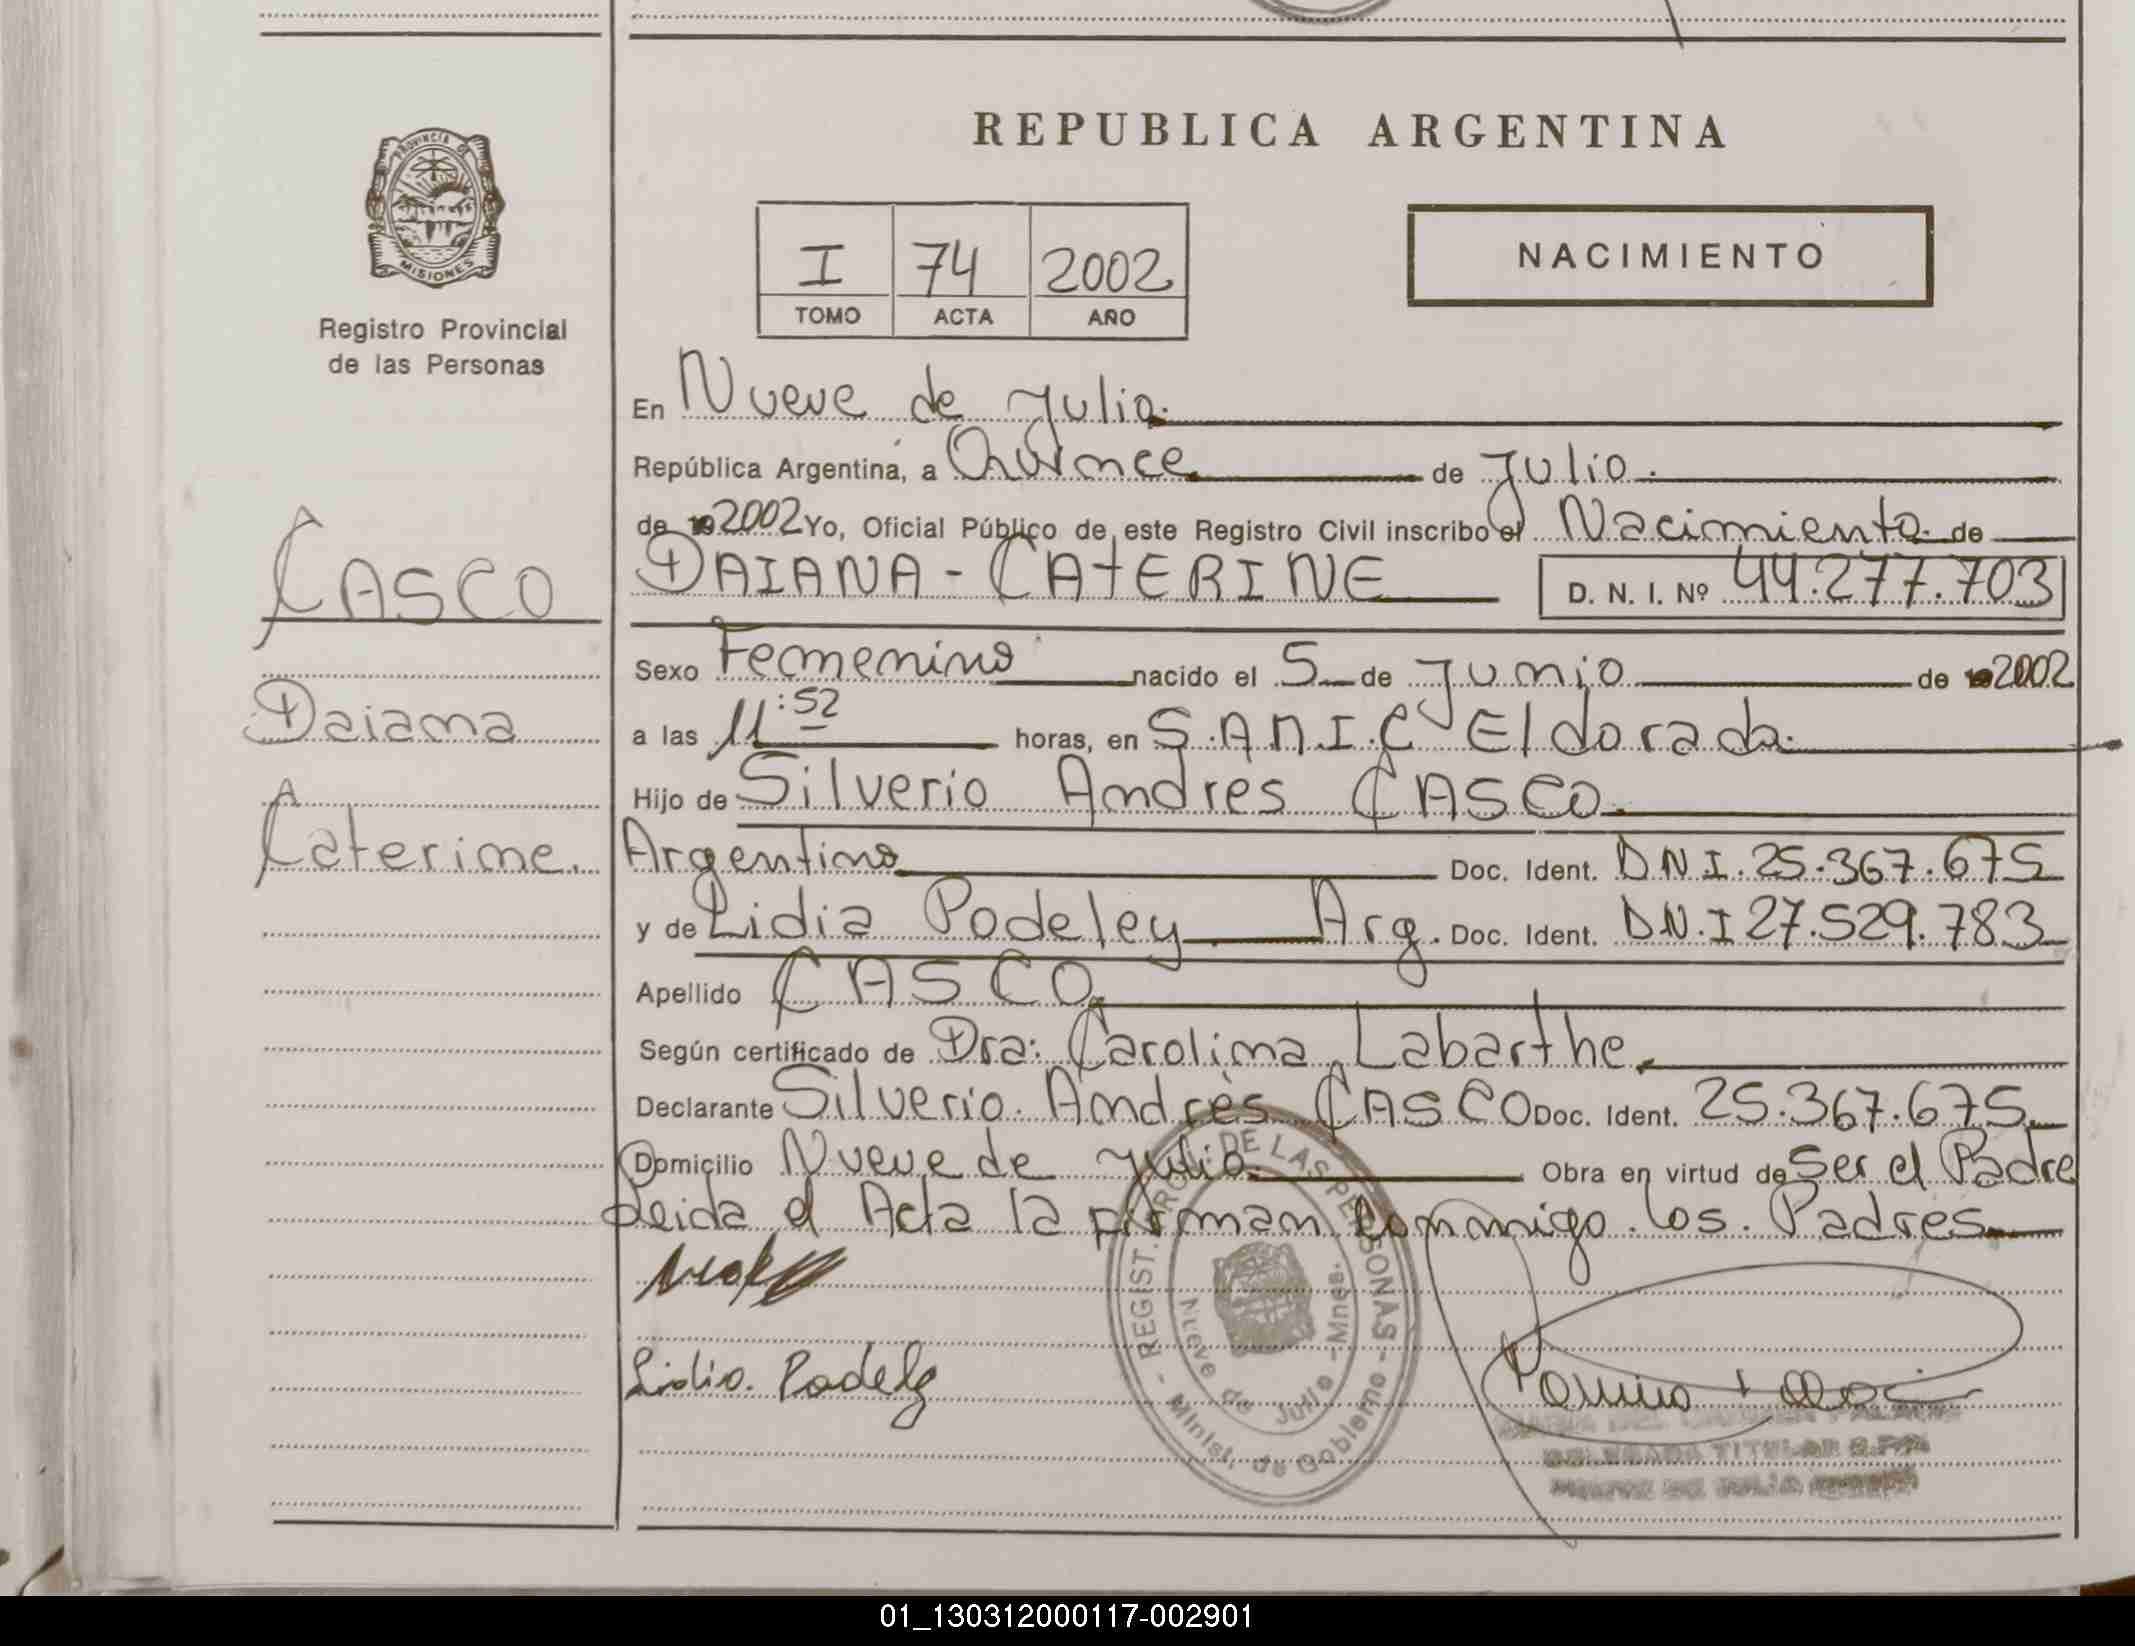 REPUBLICA ARGENTINA
PROVINCIA DE
MISIONES
Registro Provincial
de las Personas
I 74 2002
TOMO ACTA AÑO
NACIMIENTO
En Nueve de Julio.
República Argentina, a Quince de Julio.
de 2002 Yo, Oficial Público de este Registro Civil inscribo el Nacimiento de
DAIANA - CATERINE D. N. I. Nº 44.277.703
CASCO
Daiana
Caterine.
Sexo Femenino nacido el 5 de Junio de 2002
a las 11:52 horas, en S.A.M.I.C Eldorado.
Hijo de Silverio Andres CASCO.
Argentino Doc. Ident. DNI. 25.367.675
y de Lidia Podeley Arg. Doc. Ident. DN.I 27.529.783
Apellido CASCO
Según certificado de Dra: Carolina Labarthe.
Declarante Silverio Andrés CASCO Doc. Ident. 25.367.675
Domicilio Nueve de Julio. Obra en virtud de Ser el Padre
Leida el Acta la firman conmigo los Padres
Lidia Podeley
REGIST. PROV. DE LAS PERSONAS
Nueve de Julio - Mnes.
- Minist. de Gobierno -
DELEGADA TITULAR
NUEVE DE JULIO
01_130312000117-002901